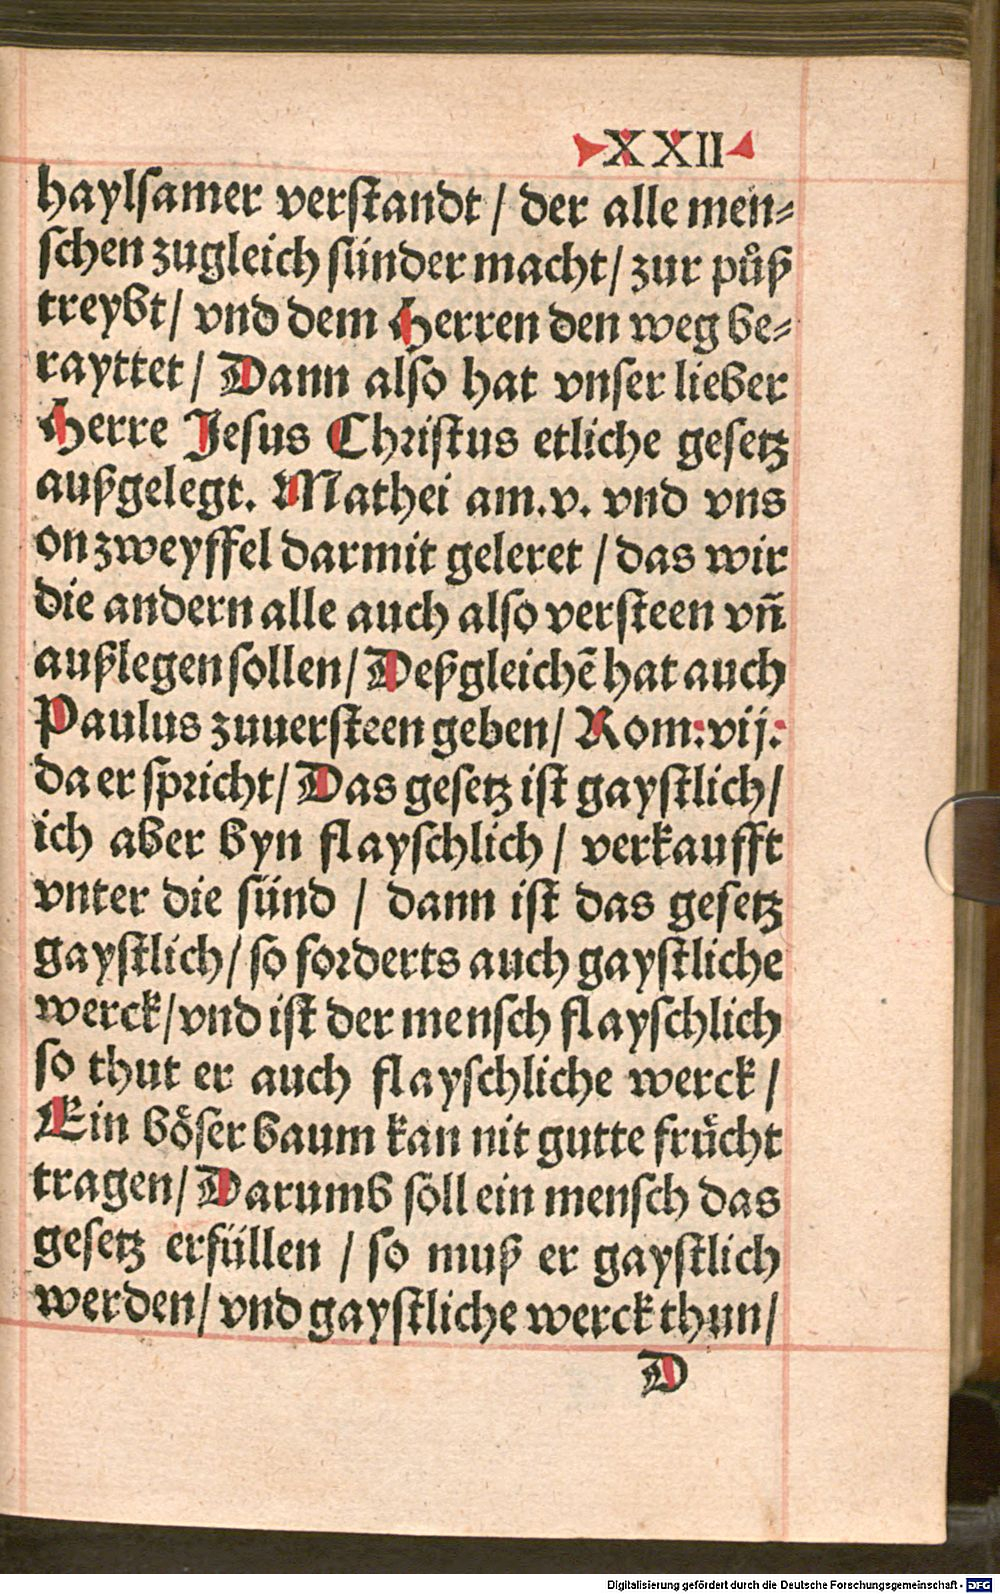 XXII
haylsamer verstandt / der alle men⸗
schen zugleich sünder macht / zur půß
treybt / vnd dem Herren den weg be⸗
rayttet / Dann also hat vnser lieber
Herre Jesus Christus etliche gesetz
außgelegt. Mathei am.v. vnd vns
on zweyffel darmit geleret / das wir
die andern alle auch also versteen vñ
außlegen sollen / Deßgleichẽ hat auch
Paulus zuuersteen geben / Rom:vij:
da er spricht / Das gesetz ist gaystlich /
ich aber byn flayschlich / verkaufft
vnter die sünd / dann ist das gesetz
gaystlich / so forderts auch gaystliche
werck / vnd ist der mensch flayschlich
so thut er auch flayschliche werck /
Ein böser baum kan nit gutte frücht
tragen / Darumb soll ein mensch das
gesetz erfüllen / so muß er gaystlich
werden / vnd gaystliche werck thun /
D
Digitalisierung gefördert durch die Deutsche Forschungsgemeinschaft - DFG